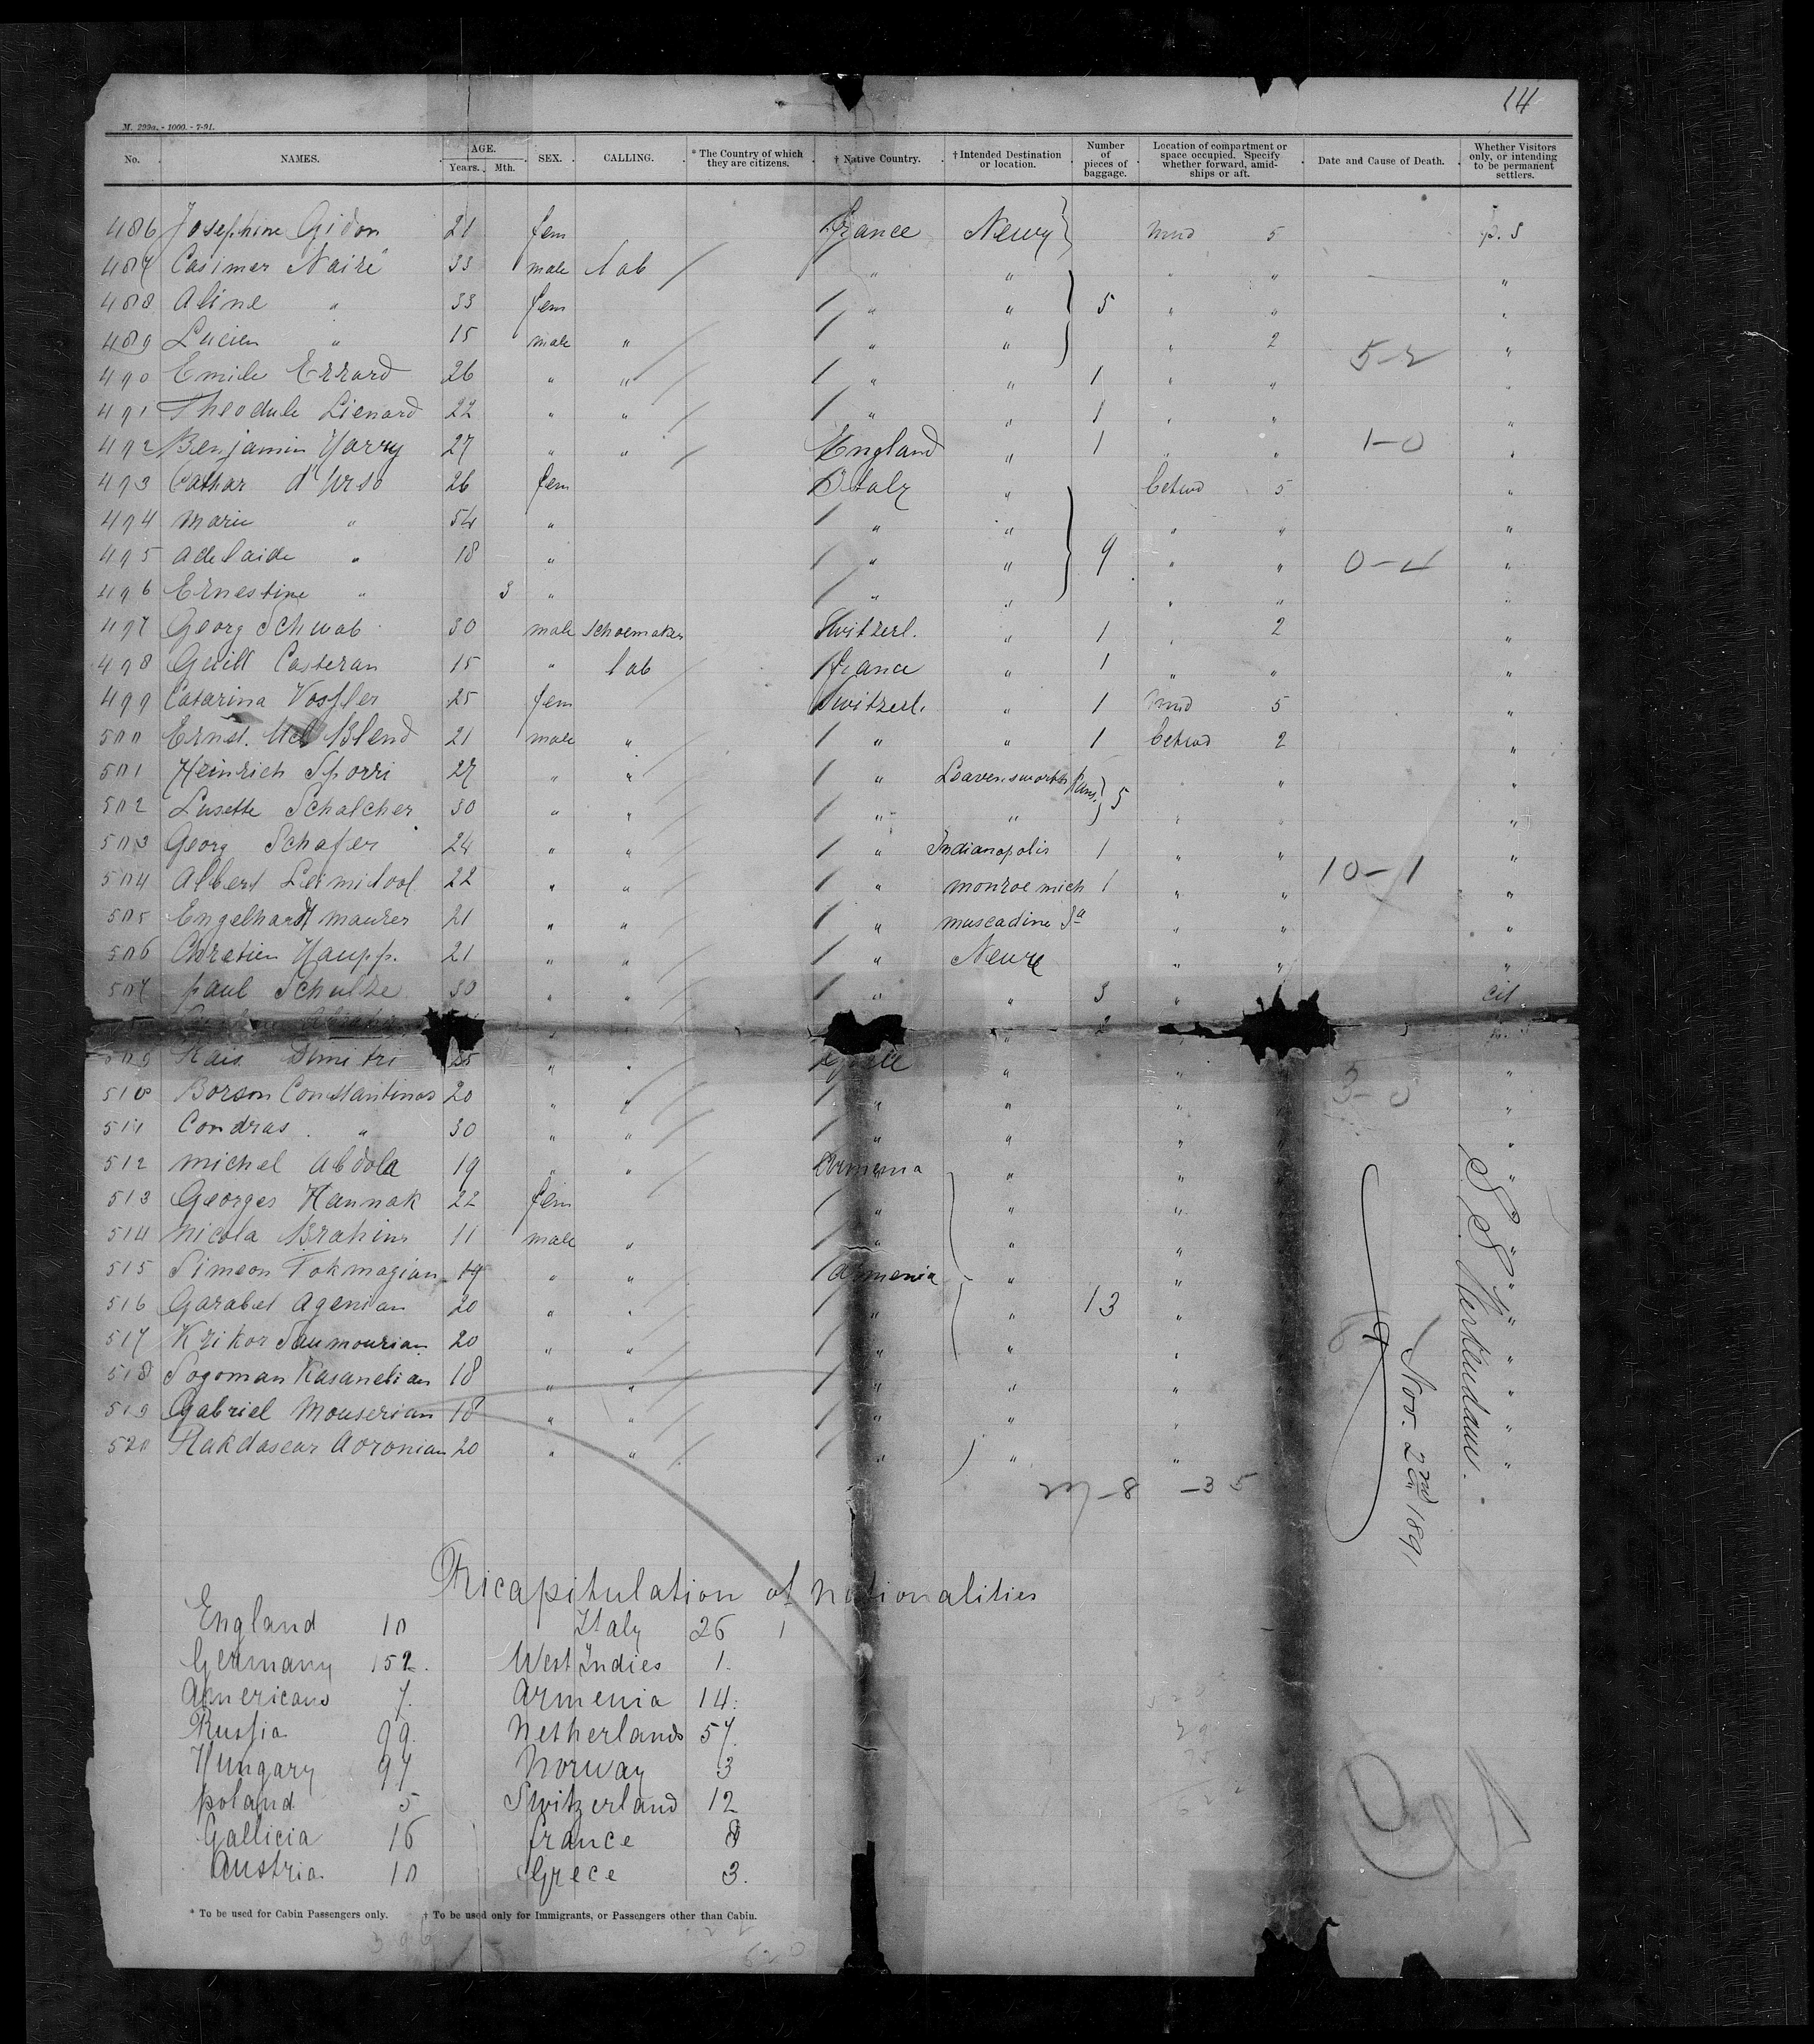 14
M. 299a. - 1000. - 7-91.
No. NAMES. AGE. Years. Mth. SEX. CALLING. * The Country of which they are citizens. † Native Country. † Intended Destination or location. Number of pieces of baggage. Location of compartment or space occupied. Specify whether forward, amidships or aft. Date and Cause of Death. Whether Visitors only, or intending to be permanent settlers.
486 Josephine Gidon 21 fem France Newy 5 p. S
487 Casimer Nairé 33 male lab " " " " "
488 Aline " 33 fem " " 5 " " "
489 Lucien " 15 male " " " " 2 "
5-2
490 Emile Errard 26 " " " " 1 " " "
491 Theodule Lienard 22 " " " " 1 " " "
492 Benjamin Harry 27 " " England " 1 " " 1-0 "
493 Cathar d'Urso 26 fem Italy " betwd 5 "
494 Marie " 54 " " " " " "
495 Adelaide " 18 " " " 9 " " 0-4 "
496 Ernestine " 3 " " " " " "
497 Georg Schwab 30 male Schoemaker Switzerl. " 1 " 2 "
498 Guill Casteran 15 " lab france " 1 " " "
499 Catarina Vossler 25 fem Switzerl. " 1 5 "
500 Ernst. Blend 21 male " " " 1 betwd 2 "
501 Heinrich Sporri 27 " " " Leavensworth Kans. 5 " "
502 Lusette Schalcher 30 " " " " " " "
503 Georg Schafer 24 " " " Indianapolis 1 " " "
10-1
504 Albert 22 " " " monroe mich 1 " " "
505 Engelhardt maurer 21 " " " muscadine " " "
506 Chretien Haupp. 21 " " " " " "
507 paul Schultze 30 " " " " 3 " cit
" " " 2 "
509 Dimitri 25 " " " " "
510 Borson Constantinos 20 " " " " " "
3-0
511 Condras " 30 " " " " " "
512 michel Abdola 19 " " Armenia " " "
513 Georges Hannak 22 fem " " " "
514 Nicola Brahim 11 male " " " " "
515 Simeon Tokmagian 19 " " Armenia " " "
516 Garabet Agenian 20 " " " " 13 " "
517 Krikor Saumourian 20 " " " " " "
518 Sogoman Kasanelian 18 " " " " " "
519 Gabriel Mouserian 18 " " " " " "
520 Aoronian 20 " " " " " "
S. S. Werkendam.
Nov. 2nd 1891
-8 -35
Ricapitulation of nationalities
England 10 Italy 26
Germany 152. West Indies 1.
Americans 7. Armenia 14.
Russia 99. Netherlands 57.
Hungary 97 Norway 3
poland 5 Switzerland 12
Gallicia 16 france 8
Austria 10 Grece 3.
* To be used for Cabin Passengers only. † To be used only for Immigrants, or Passengers other than Cabin.
520